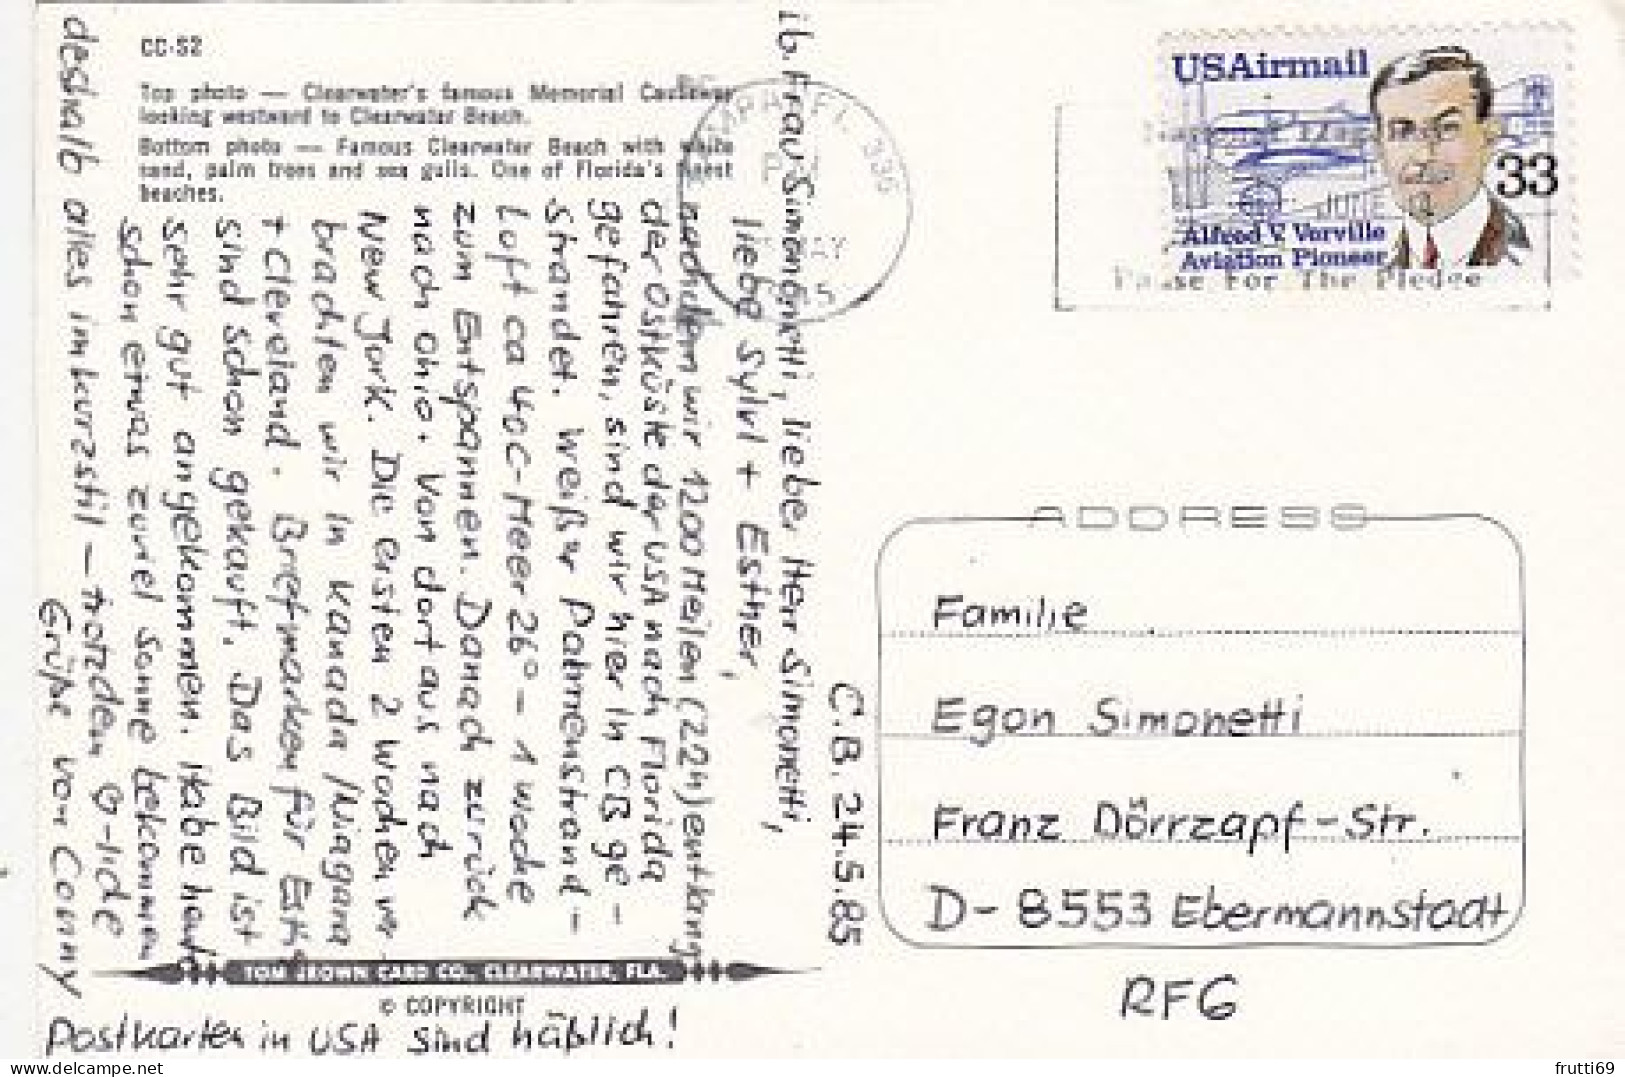 CC-S2
Top photo — Clearwater's famous Memorial Causeway
looking westward to Clearwater Beach.
Bottom photo — Famous Clearwater Beach with white
sand, palm trees and sea gulls. One of Florida's finest
beaches.
USAirmail
33
Alfred V. Verville
Aviation Pioneer
JUNE 14
Pause For The Pledge
FL 336
MAY
C.B. 24.5.85
lb. Frau Simonetti, lieber Herr Simonetti,
liebe Sylvi + Esther,
nachdem wir 1200 Meilen (224) entlang
der Ostküste der USA nach Florida
gefahren, sind wir hier in CB ge-
strandet. Weißer Palmenstrand -
Luft ca 40C - Meer 26° - 1 Woche
zum Entspannen. Danach zurück
nach Ohio. Von dort aus nach
New York. Die ersten 2 Wochen ver-
brachten wir in Kanada / Niagara
+ Cleveland. Briefmarken für
sind schon gekauft. Das Bild ist
sehr gut angekommen. Habe heute
schon etwas zuviel Sonne bekommen
deshalb alles in kurzstil - trotzdem ♡-liche
Grüße von Conny
Postkarten in USA sind häßlich!
TOM BROWN CARD CO., CLEARWATER, FLA.
© COPYRIGHT
ADDRESS
Familie
Egon Simonetti
Franz Dörrzapf-Str.
D-8553 Ebermannstadt
RFG
delcampe.net
frutti69